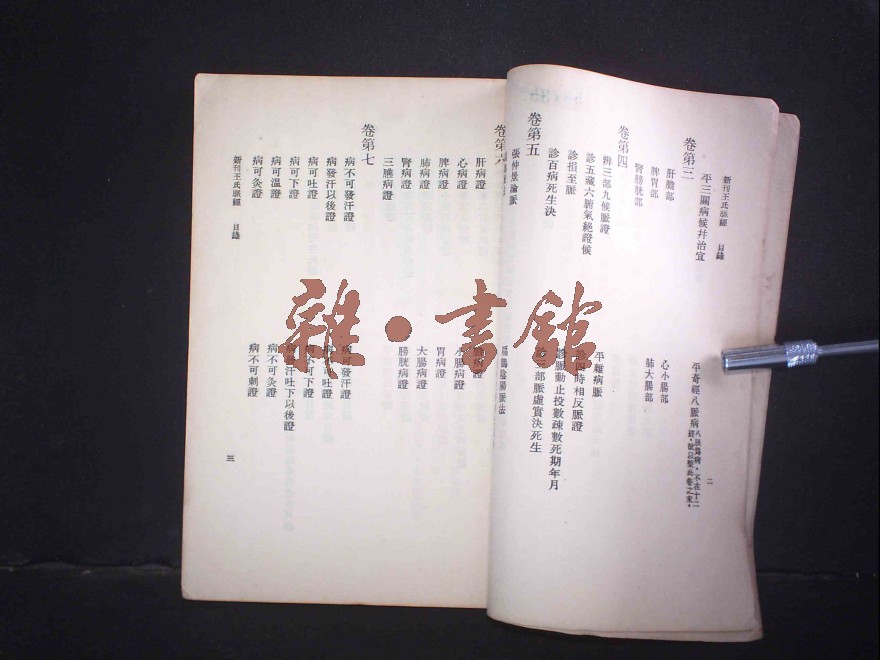 新刊王氏脈經　目錄
二
平三關病候并治宜
平奇經八脈病
卷第三
肝膽部
心小腸部
脾胃部
肺大腸部
腎膀胱部
卷第四
辨三部九候脈證
平雜病脈
診五藏六腑氣絕證候
診四時相反脈證
診損至脈
診脈動止投數疎數死期年月
診百病死生決
部脈虛實決死生
卷第五
張仲景論脈
扁鵲陰陽脈法
卷第六
肝病證
心病證
小腸病證
脾病證
胃病證
肺病證
大腸病證
腎病證
膀胱病證
三膲病證
卷第七
病不可發汗證
病可發汗證
病發汗以後證
病可吐證
病不可下證
病可下證
發汗吐下以後證
病可溫證
病不可灸證
病可灸證
病不可刺證
新刊王氏脈經　目錄
三
雜·書館